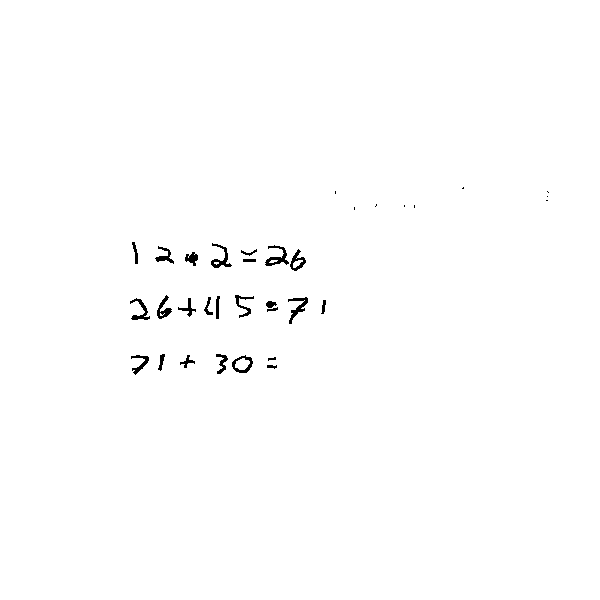 12*2=26
26+45=71
71+30=